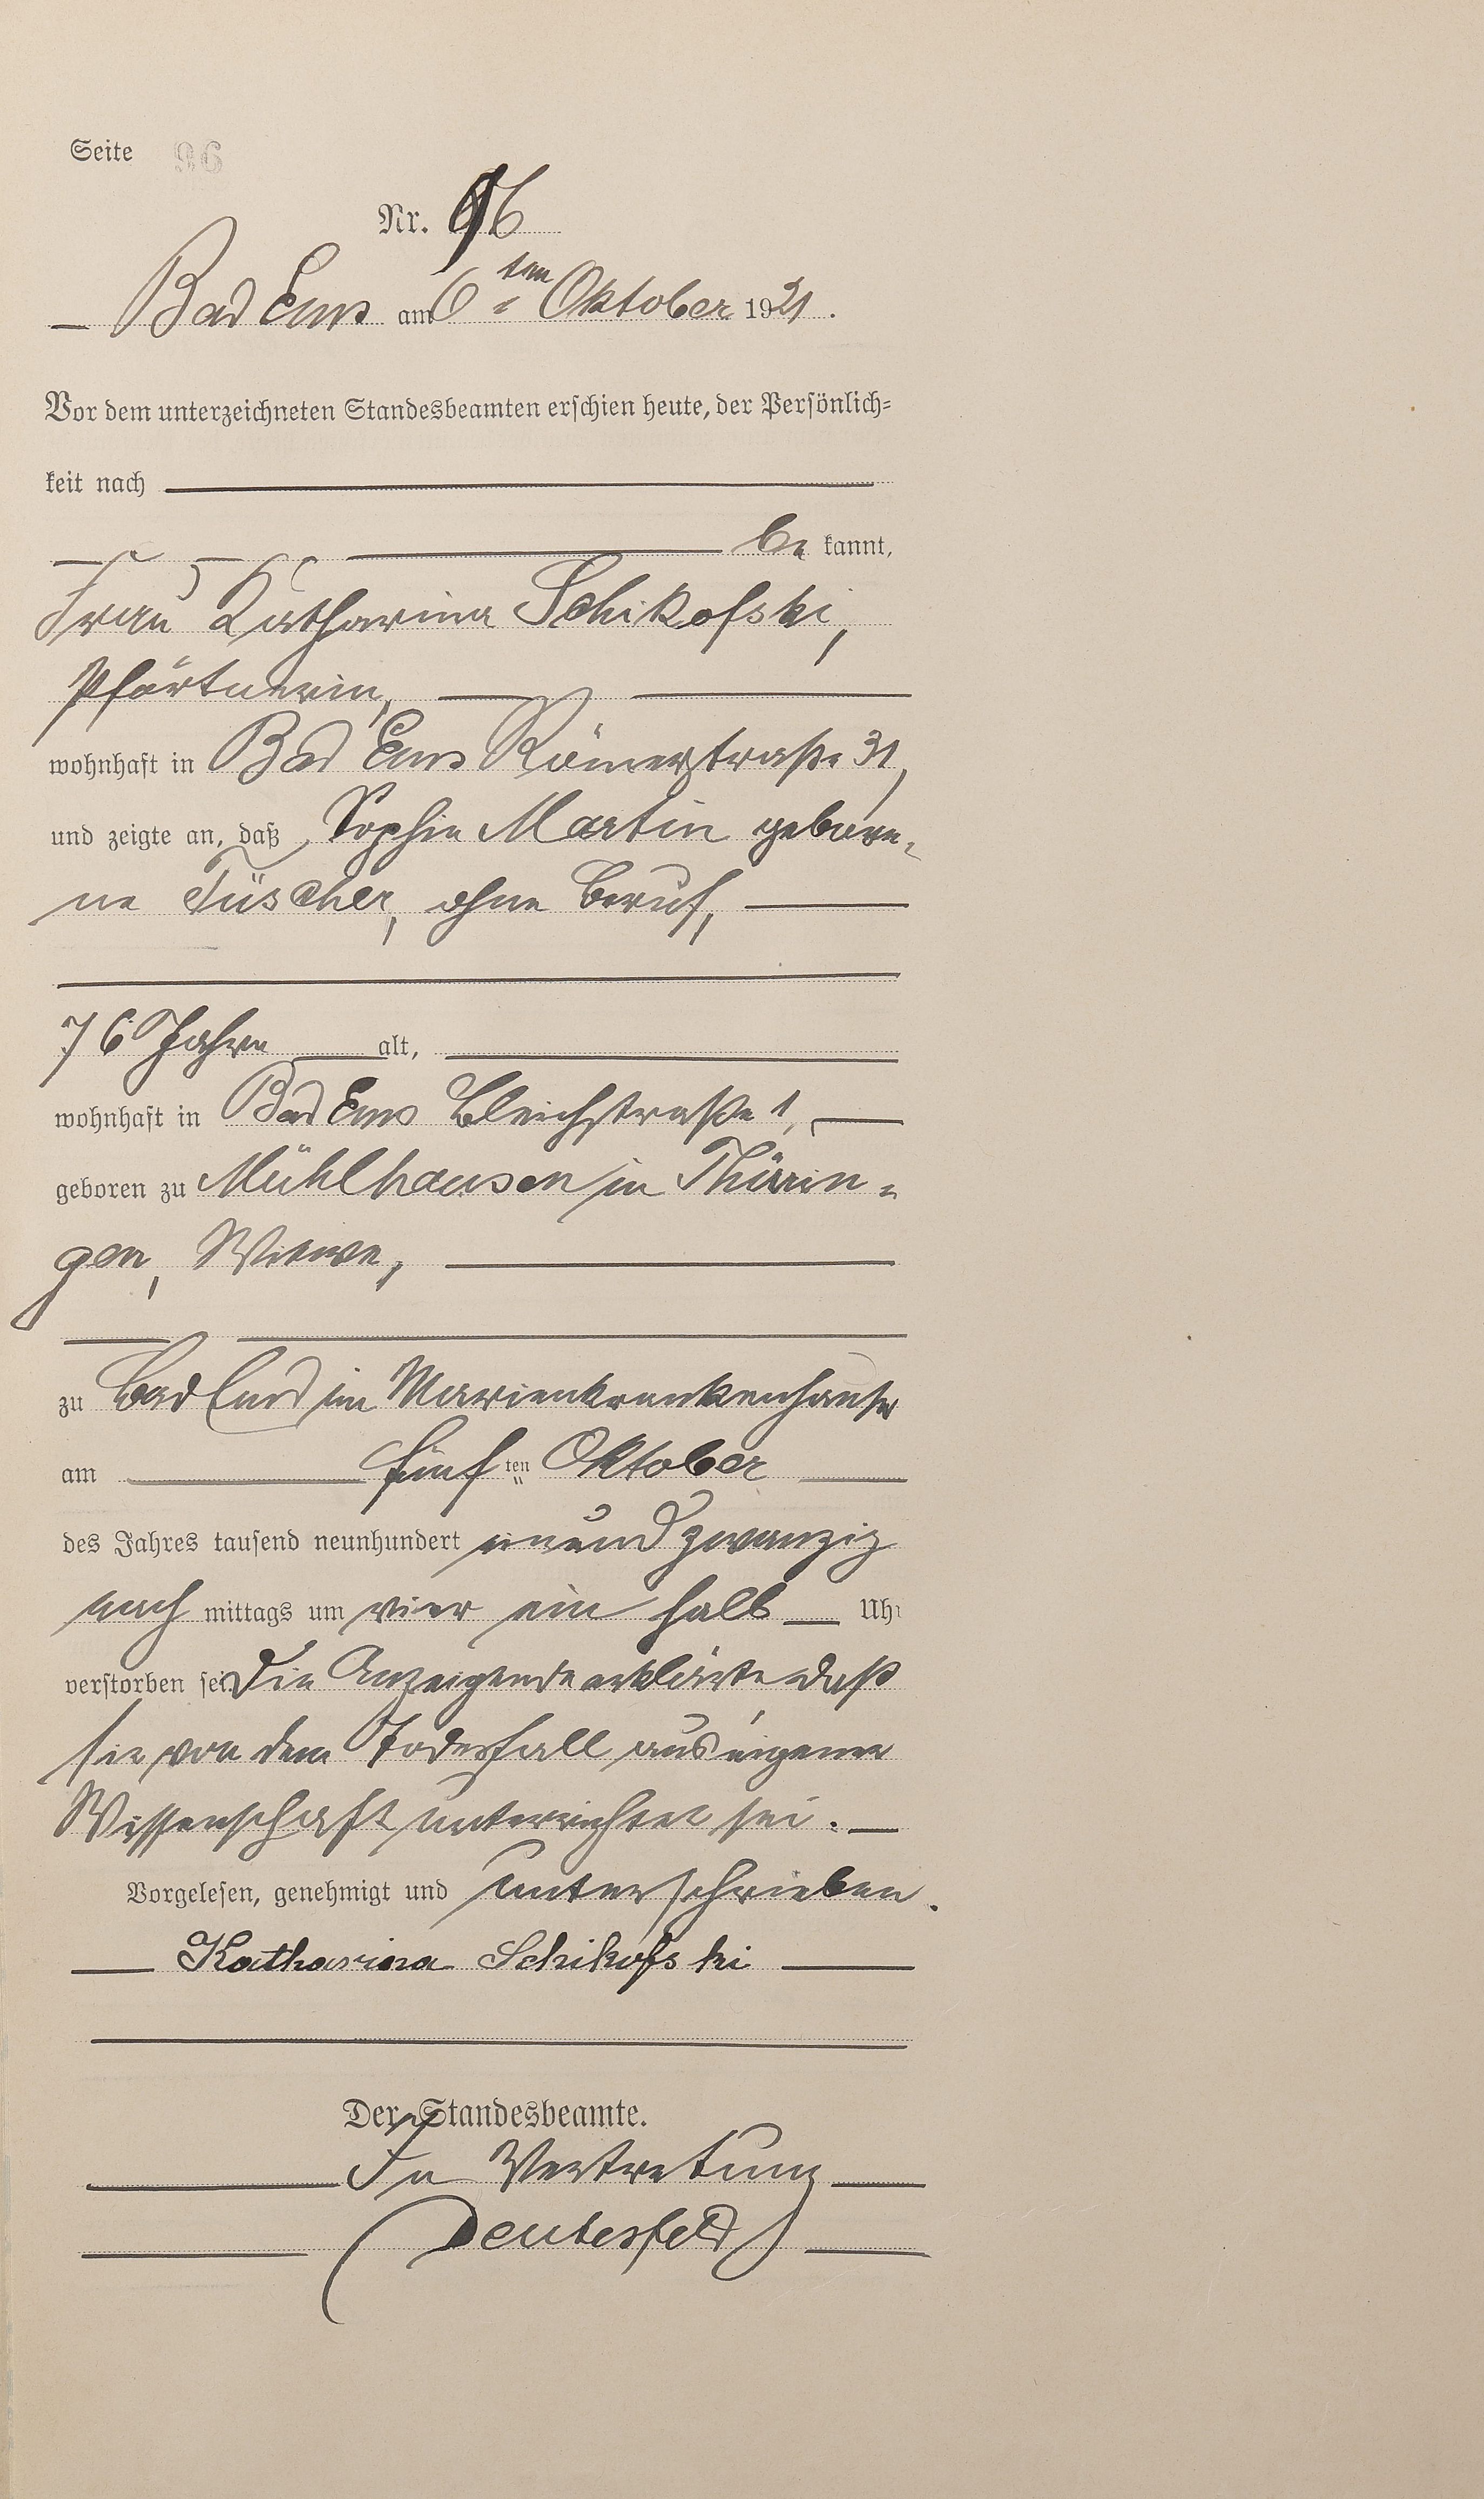 Seite 96
Nr. 96
Bad Ems am 6ten Oktober 1921.
Vor dem unterzeichneten Standesbeamten erschien heute, der Persönlich-
keit nach
be kannt,
Frau Katharina Schikofski,
Pförtnerin,
wohnhaft in Bad Ems Römerstraße 31,
und zeigte an, daß Sophie Martin gebore-
ne Tüscher, ohne Beruf,
76 Jahre alt,
wohnhaft in Bad Ems Bleichstraße 1,
geboren zu Mühlhausen in Thürin-
gen, Witwe,
zu Bad Ems im Marienkrankenhause
am fünften Oktober
des Jahres tausend neunhundert einundzwanzig
nach mittags um vier ein halb Uhr
verstorben sei. Die Anzeigende erklärte daß
sie von dem Todesfall aus eigener
Wissenschaft unterrichtet sei.
Vorgelesen, genehmigt und unterschrieben.
Katharina Schikofski
Der Standesbeamte.
In Vertretung
Deutesfeld